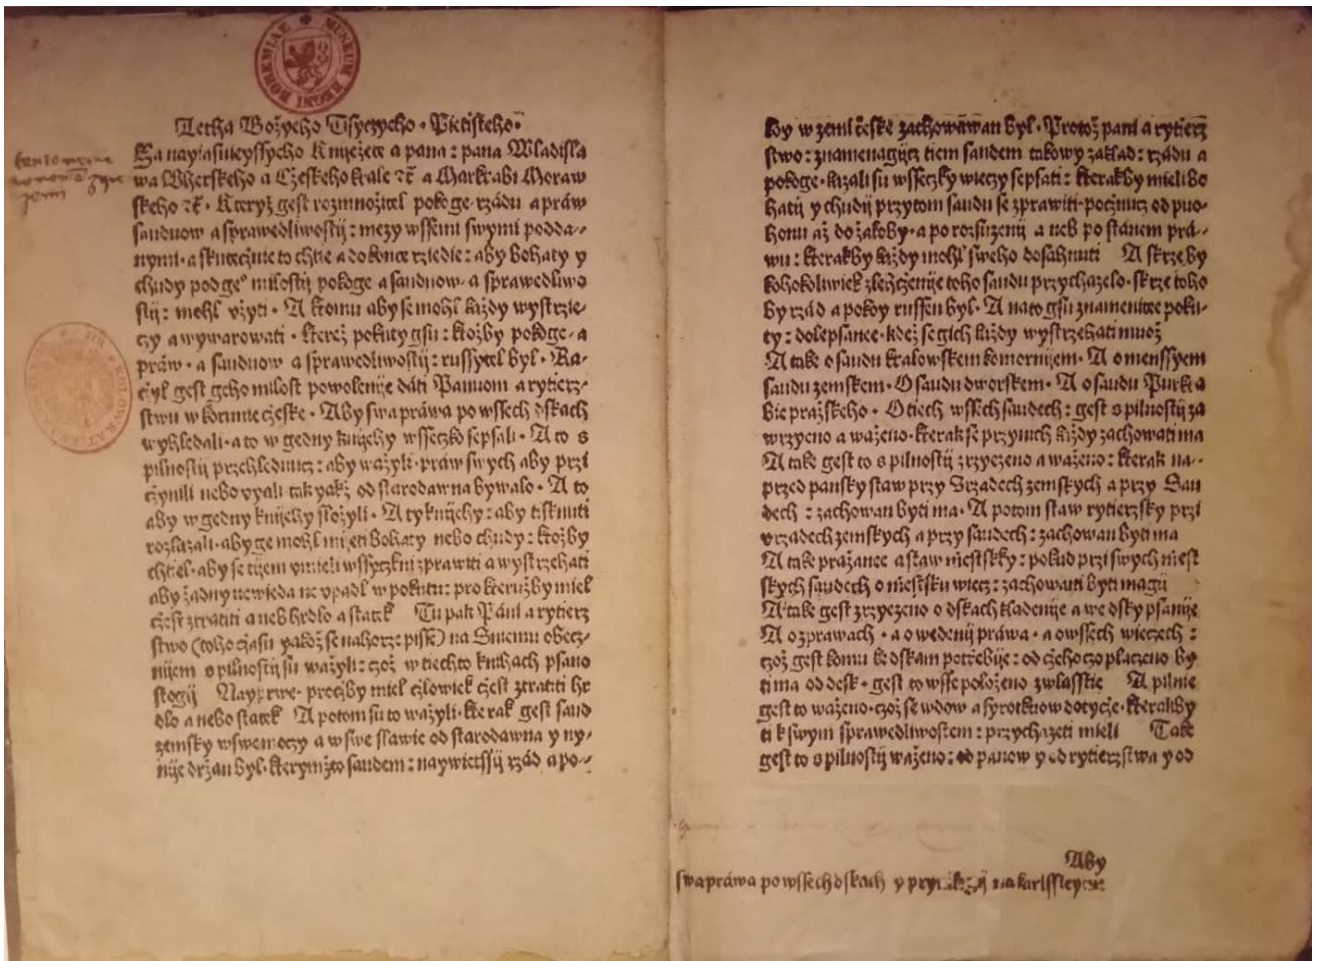 Letha Božycho Tisyczycho · Pietisteho·
Za nayiasnieyssycho Kniježete a pana : pana Wladisla
wa Vherskeho a Cžeskeho krale ꝛč a Markrabi Moraw
skeho ꝛč · Kteryž gest rozmnožitel pokoge · rzádu a práw
sauduow a sprawedliwostij : mezy wssemi swymi podda⸗
nymi · a skutecžnie to chtie a do konce rziedie : aby bohaty y
chudy pod geº milostij pokoge a sauduow · a sprawedliwo
stij : mohl vžyti · A k tomu aby se mohl každy wystrzie⸗
czy a wywarowati · kterež pokuty gsu : ktožby pokoge · a
práw · a sauduow a sprawedliwostij : russytel byl · Ra⸗
cžyl gest geho milost powolenije dáti Panuom a rytierz⸗
stwu w korunie cžeske · Aby swa práwa po wssech dskach
wyhledali · a to w gedny knijehy wsseczko sepsali · A to s
pilnostij przehlednucz : aby wažyli · práw swych aby przi
cžynili nebo vyali tak yakž od starodawna bywalo · A to
aby w gedny knijehy složyli · A ty knijehy : aby tisknuti
rozkazali · aby ge mohl mijeti bohaty nebo chudy : ktožby
chtiel · aby se tijem vmieli wssyczkni zprawiti a wystrzehati
aby žadny newieda ne vpadl w pokutu : pro kteružby miel
cžest ztratiti a neb hrdlo a statek Tu pak Páni a rytierz
stwo (toho cžasu yakož se nahorze pisse) na Sniemu obecz⸗
nijem s pilnostij su wažyli : czož w tiechto knihach psano
stogij Nayprwe · procžby miel cžlowiek cžest ztratiti hr
dlo a nebo statek A potom su to wažyli · kterak gest saud
zemsky w swe moczy a w swe slawie od starodawna y ny⸗
nije držan byl · kterymžto saudem : naywietssij rzád a po⸗
koy w zemi cžeske zachowáwan byl · Protož pani a rytierz
stwo : znamenagijcz tiem saudem takowy zaklad : rzádu a
pokoge · kazali su wsseczky wieczy sepsati : kterakby mieli bo
hatij y chudij przytom saudu se zprawiti · pocžnucz od puo⸗
honu až do žaloby · a po rozsuzenij a neb po stanem prá⸗
wu : kterakby každy mohl sweho dosahnuti A skrze by
kohokoliwiek zlehcženije toho saudu przychazelo · skrze toho
by rzád a pokoy russen byl · A na to gsu znamenitee poku⸗
ty : dolepsanee · kdež se gich každy wystrzehati muož
A take o saudu kralowskem komornijem · A o menssyem
saudu zemskem · O saudu dworskem · A o saudu Purkra
bie pražskeho · O tiech wssech saudech : gest s pilnostij za
wrzyeno a waženo · kterak se przynich každy zachowati ma
A také gest to s pilnostij zrzyezeno a waženo : kterak na⸗
przed pansky staw przy Vrzadech zemskych a przy Sau
dech : zachowan byti ma · A potom staw rytierzsky przi
vrzadech zemskych a przy saudech : zachowan byti ma
A take pražanee a staw miestskky : pokud przi swych miest
skych saudech o miestsku wiecz : zachowati byti magij
A take gest zrzyezeno o dskach kladenije a we dsky psanije
A o zprawach · a o wedenij práwa · a o wssech wieczech :
czož gest komu ke dskam potrebije : od cžeho czo placzeno by
ti ma od desk · gest to wsse položeno zwlasstie A pilnie
gest to waženo · czož se wdow a syrotkuow dotycže · kterakby
ti k swym sprawedliwostem : przychazeti mieli Také
gest to s pilnostij waženo : od panow y od rytierzstwa y od
Aby
swa práwa po wssech dskach y na karlssteynie